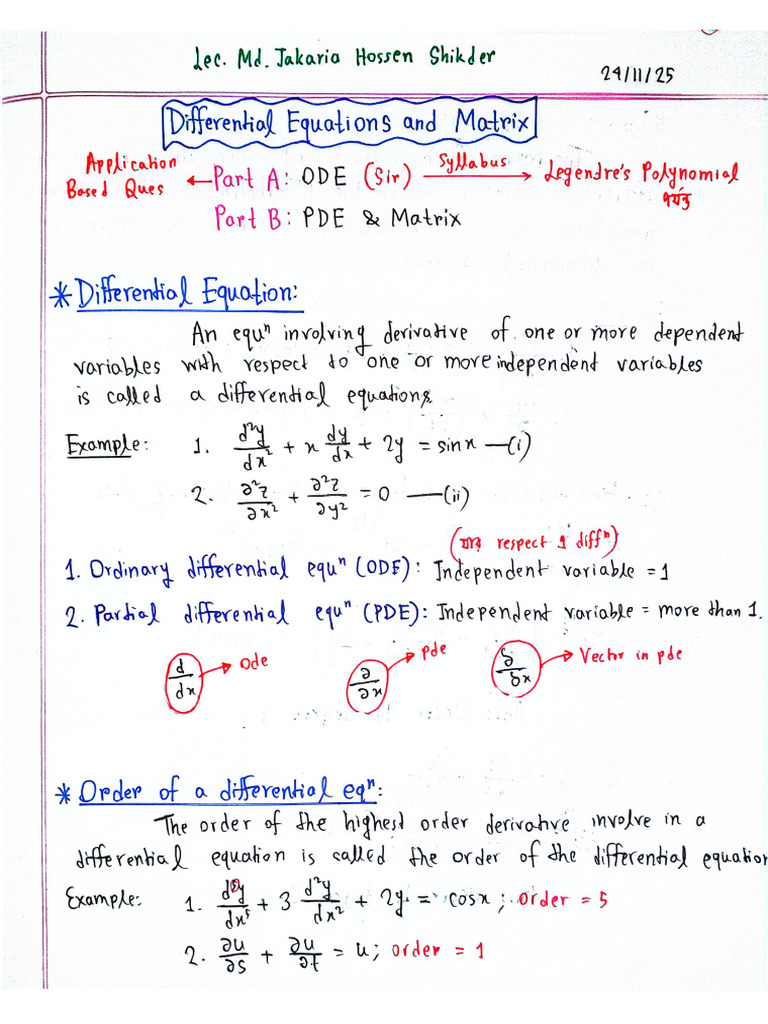 Lec. Md. Jakaria Hossen Shikder
24/11/25
Differential Equations and Matrix
Application Based Ques ← Part A: ODE (Sir) — Syllabus → Legendre's Polynomial পর্যন্ত
Part B: PDE & Matrix
* Differential Equation:
An equⁿ involving derivative of one or more dependent
variables with respect to one or more independent variables
is called a differential equations.
Example: 1. d²y/dx² + x dy/dx + 2y = sinx —(i)
2. ∂²z/∂x² + ∂²z/∂y² = 0 —(ii)
(যার respect এ diffⁿ)
1. Ordinary differential equⁿ (ODE): Independent variable = 1
2. Partial differential equⁿ (PDE): Independent variable = more than 1.
d/dx → ode ∂/∂x → pde δ/δx → Vector in pde
* Order of a differential eqⁿ:
The order of the highest order derivative involve in a
differential equation is called the order of the differential equation
Example: 1. d⁵y/dx⁵ + 3 d²y/dx² + 2y = cosx; order = 5
2. ∂u/∂s + ∂u/∂t = u; order = 1